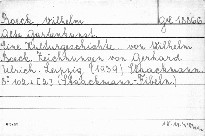 Boeck, Wilhelm
Alte Gartenkunst.
Eine Kulturgeschichte von Wilhelm
Boeck Zeichnungen von Gerhard
Ulrich. Leipzig (1939) Staackmann.
S. 102 + [2] (Staackmann-Fibeln.)